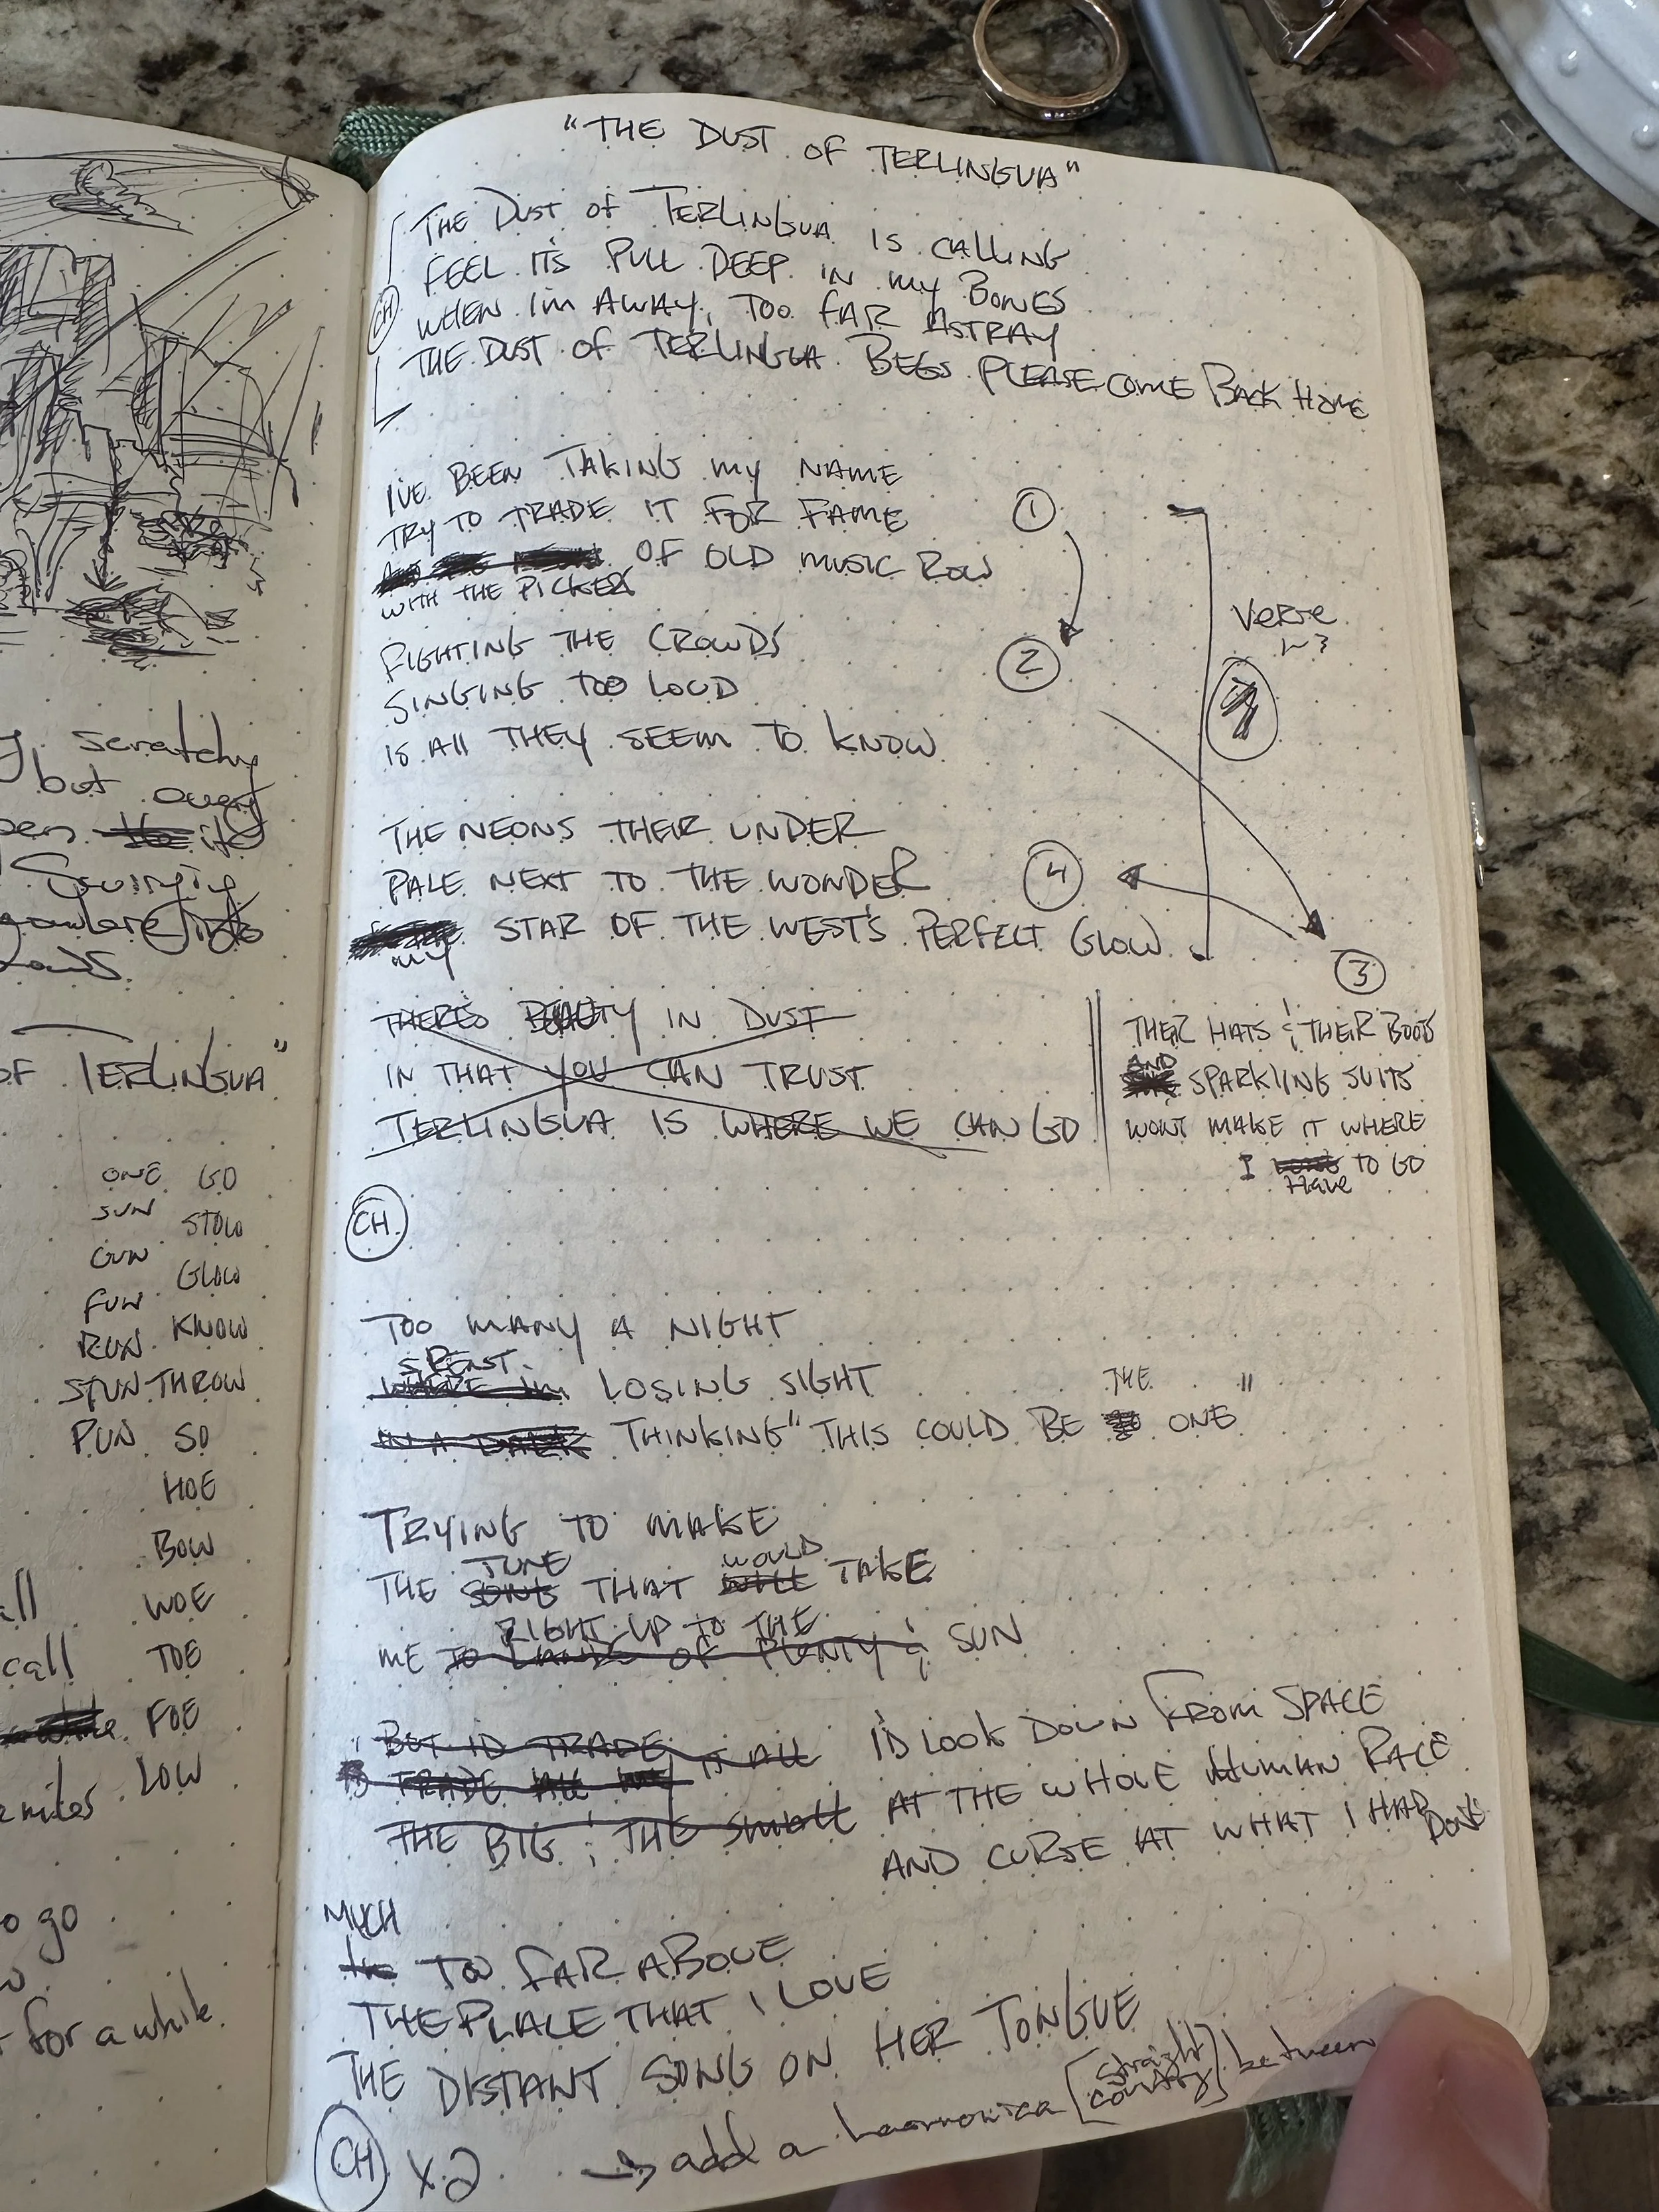 scratchy
but
it
Swinging
OF TERLINGUA"
ONE GO
SUN STOW
GUN GLOW
FUN KNOW
RUN THROW
STUN SO
PUN HOE
BOW
WOE
call TOE
FOE
LOW
to go
for a while.
"THE DUST OF TERLINGUA"
CH
THE DUST OF TERLINGUA IS CALLING
FEEL ITS PULL DEEP IN MY BONES
WHEN I'M AWAY, TOO FAR ASTRAY
THE DUST OF TERLINGUA BEGS PLEASE COME BACK HOME
I'VE BEEN TAKING MY NAME
TRY TO TRADE IT FOR FAME
OF OLD MUSIC ROW
WITH THE PICKERS
1
FIGHTING THE CROWDS
SINGING TOO LOUD
IS ALL THEY SEEM TO KNOW
2
Verse
THE NEONS THEIR UNDER
PALE NEXT TO THE WONDER
STAR OF THE WEST'S PERFECT GLOW
MY
4
3
THERE'S BEAUTY IN DUST
IN THAT YOU CAN TRUST
TERLINGUA IS WHERE WE CAN GO
THEIR HATS & THEIR BOOTS
AND
SPARKLING SUITS
WONT MAKE IT WHERE
I TO GO
HAVE
CH.
TOO MANY A NIGHT
SPENT
WHERE I'M LOSING SIGHT
THE "
IN A DARK THINKING "THIS COULD BE ONE
TRYING TO MAKE
TUNE WOULD
THE SONG THAT WILL TAKE
RIGHT UP TO THE
ME TO LANDS OF PLENTY & SUN
BUT ID TRADE IT ALL
TRADE ALL MY
THE BIG & THE SMALL
I'D LOOK DOWN FROM SPACE
AT THE WHOLE HUMAN RACE
AND CURSE AT WHAT I HAD DONE
MUCH
TOO FAR ABOVE
THE PLACE THAT I LOVE
THE DISTANT SONG ON HER TONGUE
CH X2 → add a harmonica [straight country] between